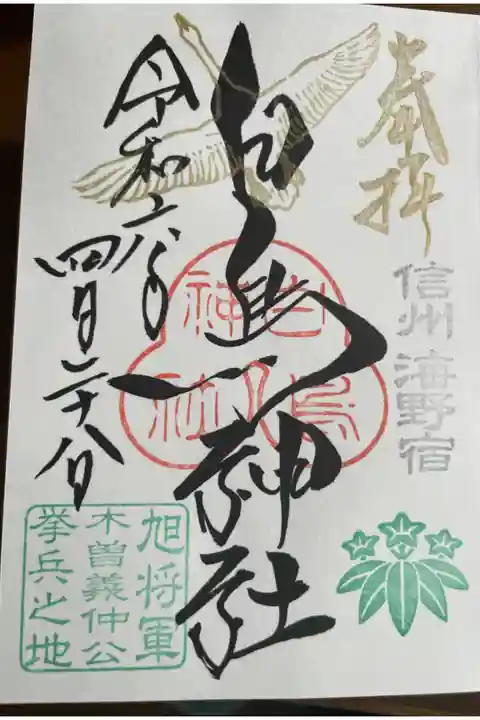 奉拝
信州海野宿
白鳥神社
白鳥
神社
令和六年
四月二十八日
旭将軍
木曽義仲公
挙兵之地